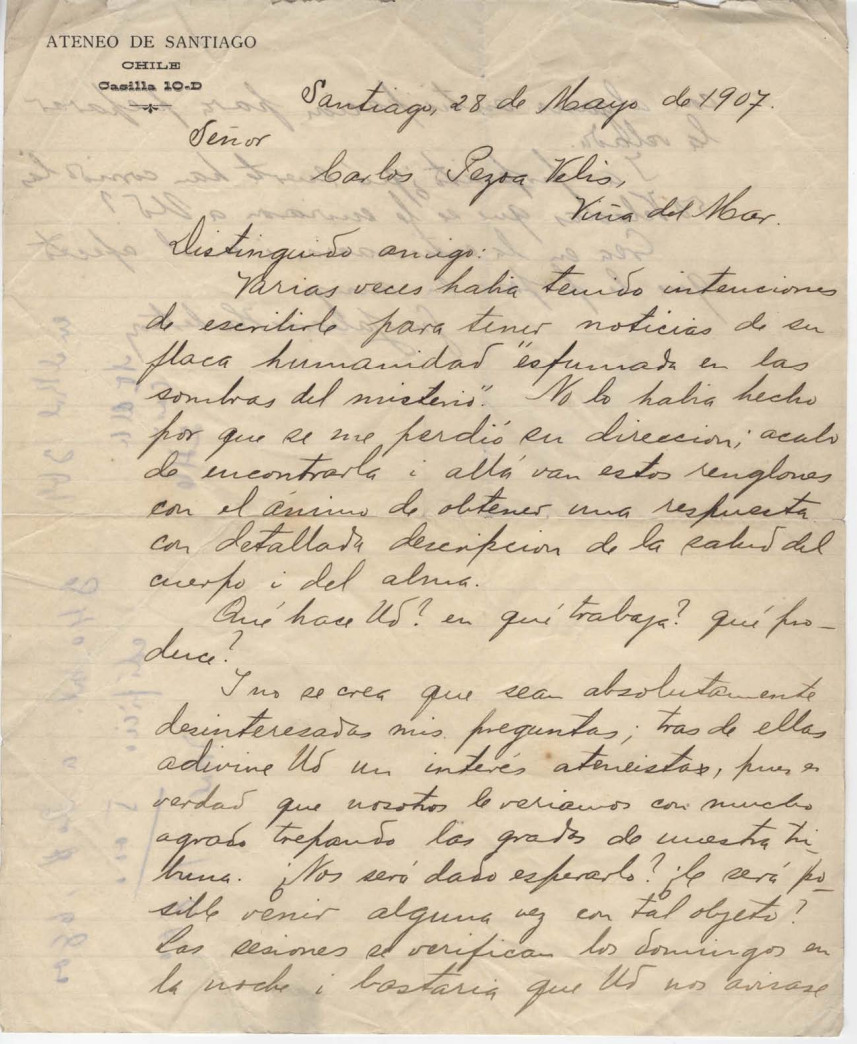 ATENEO DE SANTIAGO
CHILE
Casilla 10-D
Santiago, 28 de Mayo de 1907.
Señor
Carlos Pezoa Velis,
Viña del Mar.
Distinguido amigo:
Varias veces habia tenido intenciones
de escribirle para tener noticias de su
flaca humanidad "esfumada en las
sombras del misterio". No lo habia hecho
por que se me perdió su direccion; acabo
de encontrarla i allá van estos renglones
con el ánimo de obtener una respuesta
con detallada descripcion de la salud del
cuerpo i del alma.
Qué hace Ud? en qué trabaja? qué pro-
duce?
I no se crea que sean absolutamente
desinteresadas mis preguntas; tras de ellas
adivine Ud un interés ateneista, pues es
verdad que nosotros le veriamos con mucho
agrado trepando las gradas de nuestra tri-
buna. ¿Nos será dado esperarlo? ¿le será po-
sible venir alguna vez con tal objeto?
Las sesiones se verifican los domingos en
la noche i bastaria que Ud nos avisase